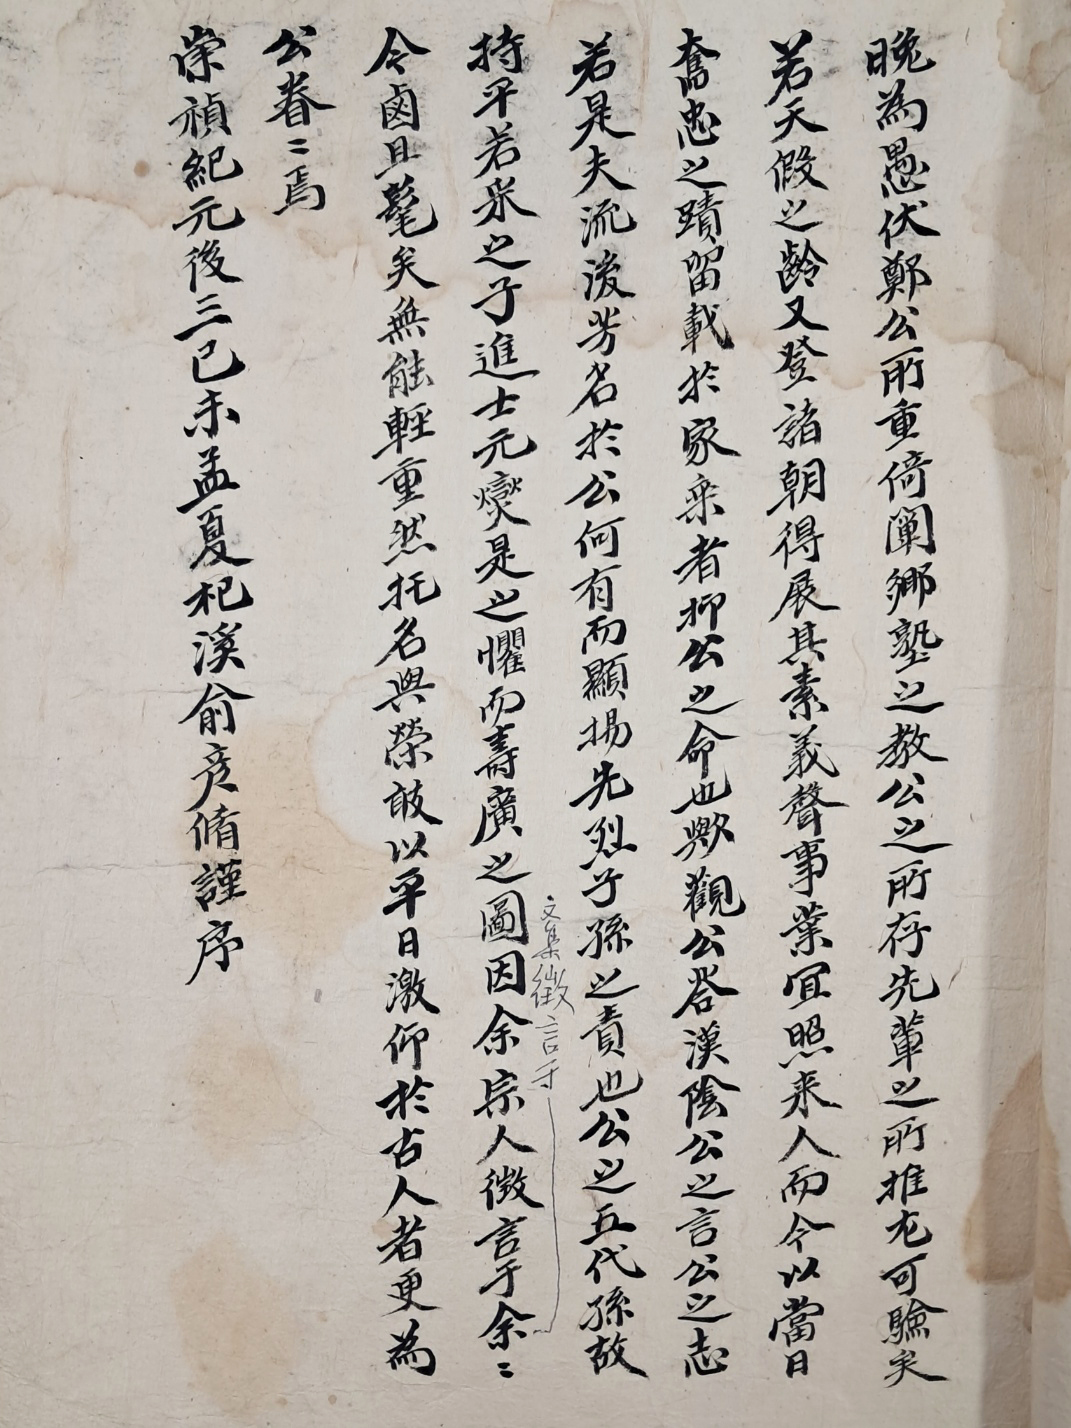 晚為愚伏鄭公所重倚闡鄉塾之教公之所存先輩之所推尤可驗矣
若天假之齡又登諸朝得展其素義聲事業宜照来人而今以當日
奮忠之蹟留載於家乘者抑公之命也歟觀公答漢陰公之言公之志
若是夫流後芳名於公何有而顯揚先烈子孫之責也公之五代孫故
持平若采之子進士元爕是之懼而壽廣之圖因余宗人徵言于余〻
文集徵言于
今鹵且髦矣無能輕重然托名與榮敢以平日激仰於古人者更為
公眷〻焉
崇禎紀元後三己未孟夏杞溪俞彦脩謹序